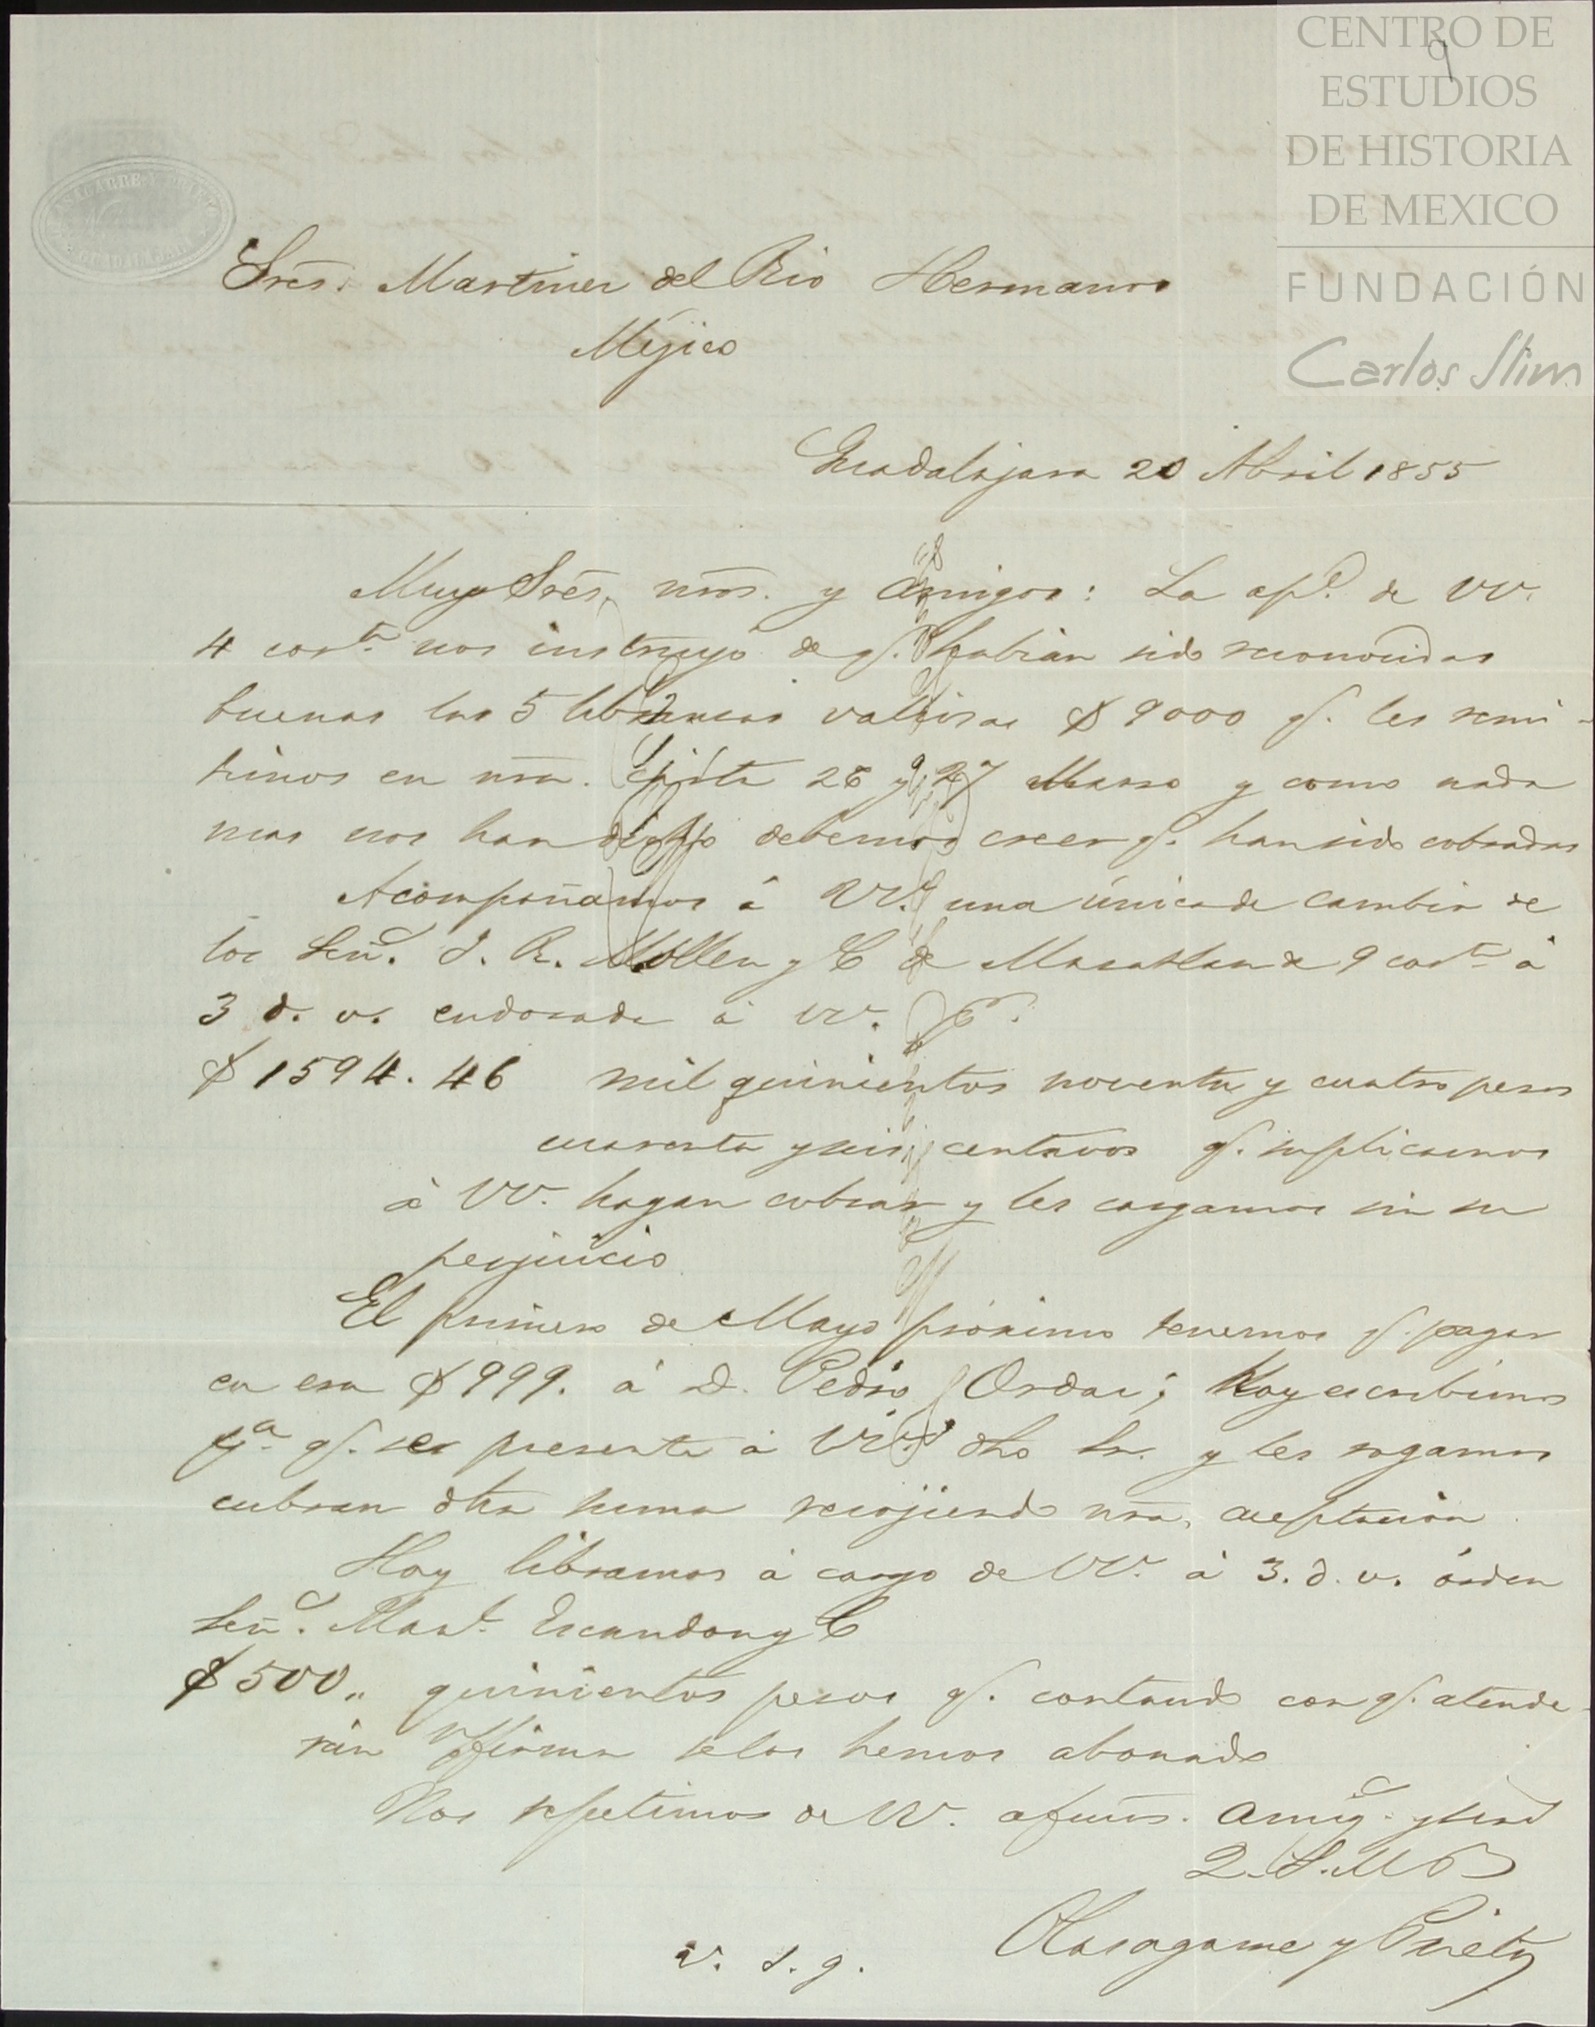 CENTRO DE
ESTUDIOS
DE HISTORIA
DE MEXICO
FUNDACIÓN
Carlos Slim
9
GUADALAJARA
Sres. Martinez del Rio Hermanos
Méjico
Guadalajara 20 Abril 1855
Muy Sres, nros. y amigos: La apd. de VV.
4 corte. nos instruyó de q. habian sido reconocidas
buenas las 5 libranzas valiosas $ 9000 q. les remi-
timos en nra. 26 y 27 Marzo y como nada
mas nos han dicho debemos creer q. han sido cobradas
Acompañamos á VV. una única de cambio de
los Señs. J. R. Mollen y C de Mazatlan de 9 corte. á
3 d. v. endosada á VV. pr.
$ 1594.46 mil quinientos noventa y cuatro pesos
cuarenta y seis centavos q. suplicamos
á VV. hagan cobrar y les cargamos sin su
perjuicio
El primero de Mayo próximo tenemos q. pagar
en esa $ 999. á D. Pedro Ordaz; Hoy escribimos
pa. q. se presente á VV. dho Sr. y les rogamos
cubran dha suma recojiendo nra. aceptacion.
Hoy libramos á cargo de VV. á 3. d. v. órden
Señs. Manl. Escandon y C
$ 500,, quinientos pesos q. contando con q. atende-
rán nfirma se los hemos abonado
Nos repetimos de VV. afmos. amigs. y serd
Q. S. M B
Olasagarre y Prieto
v. s. g.